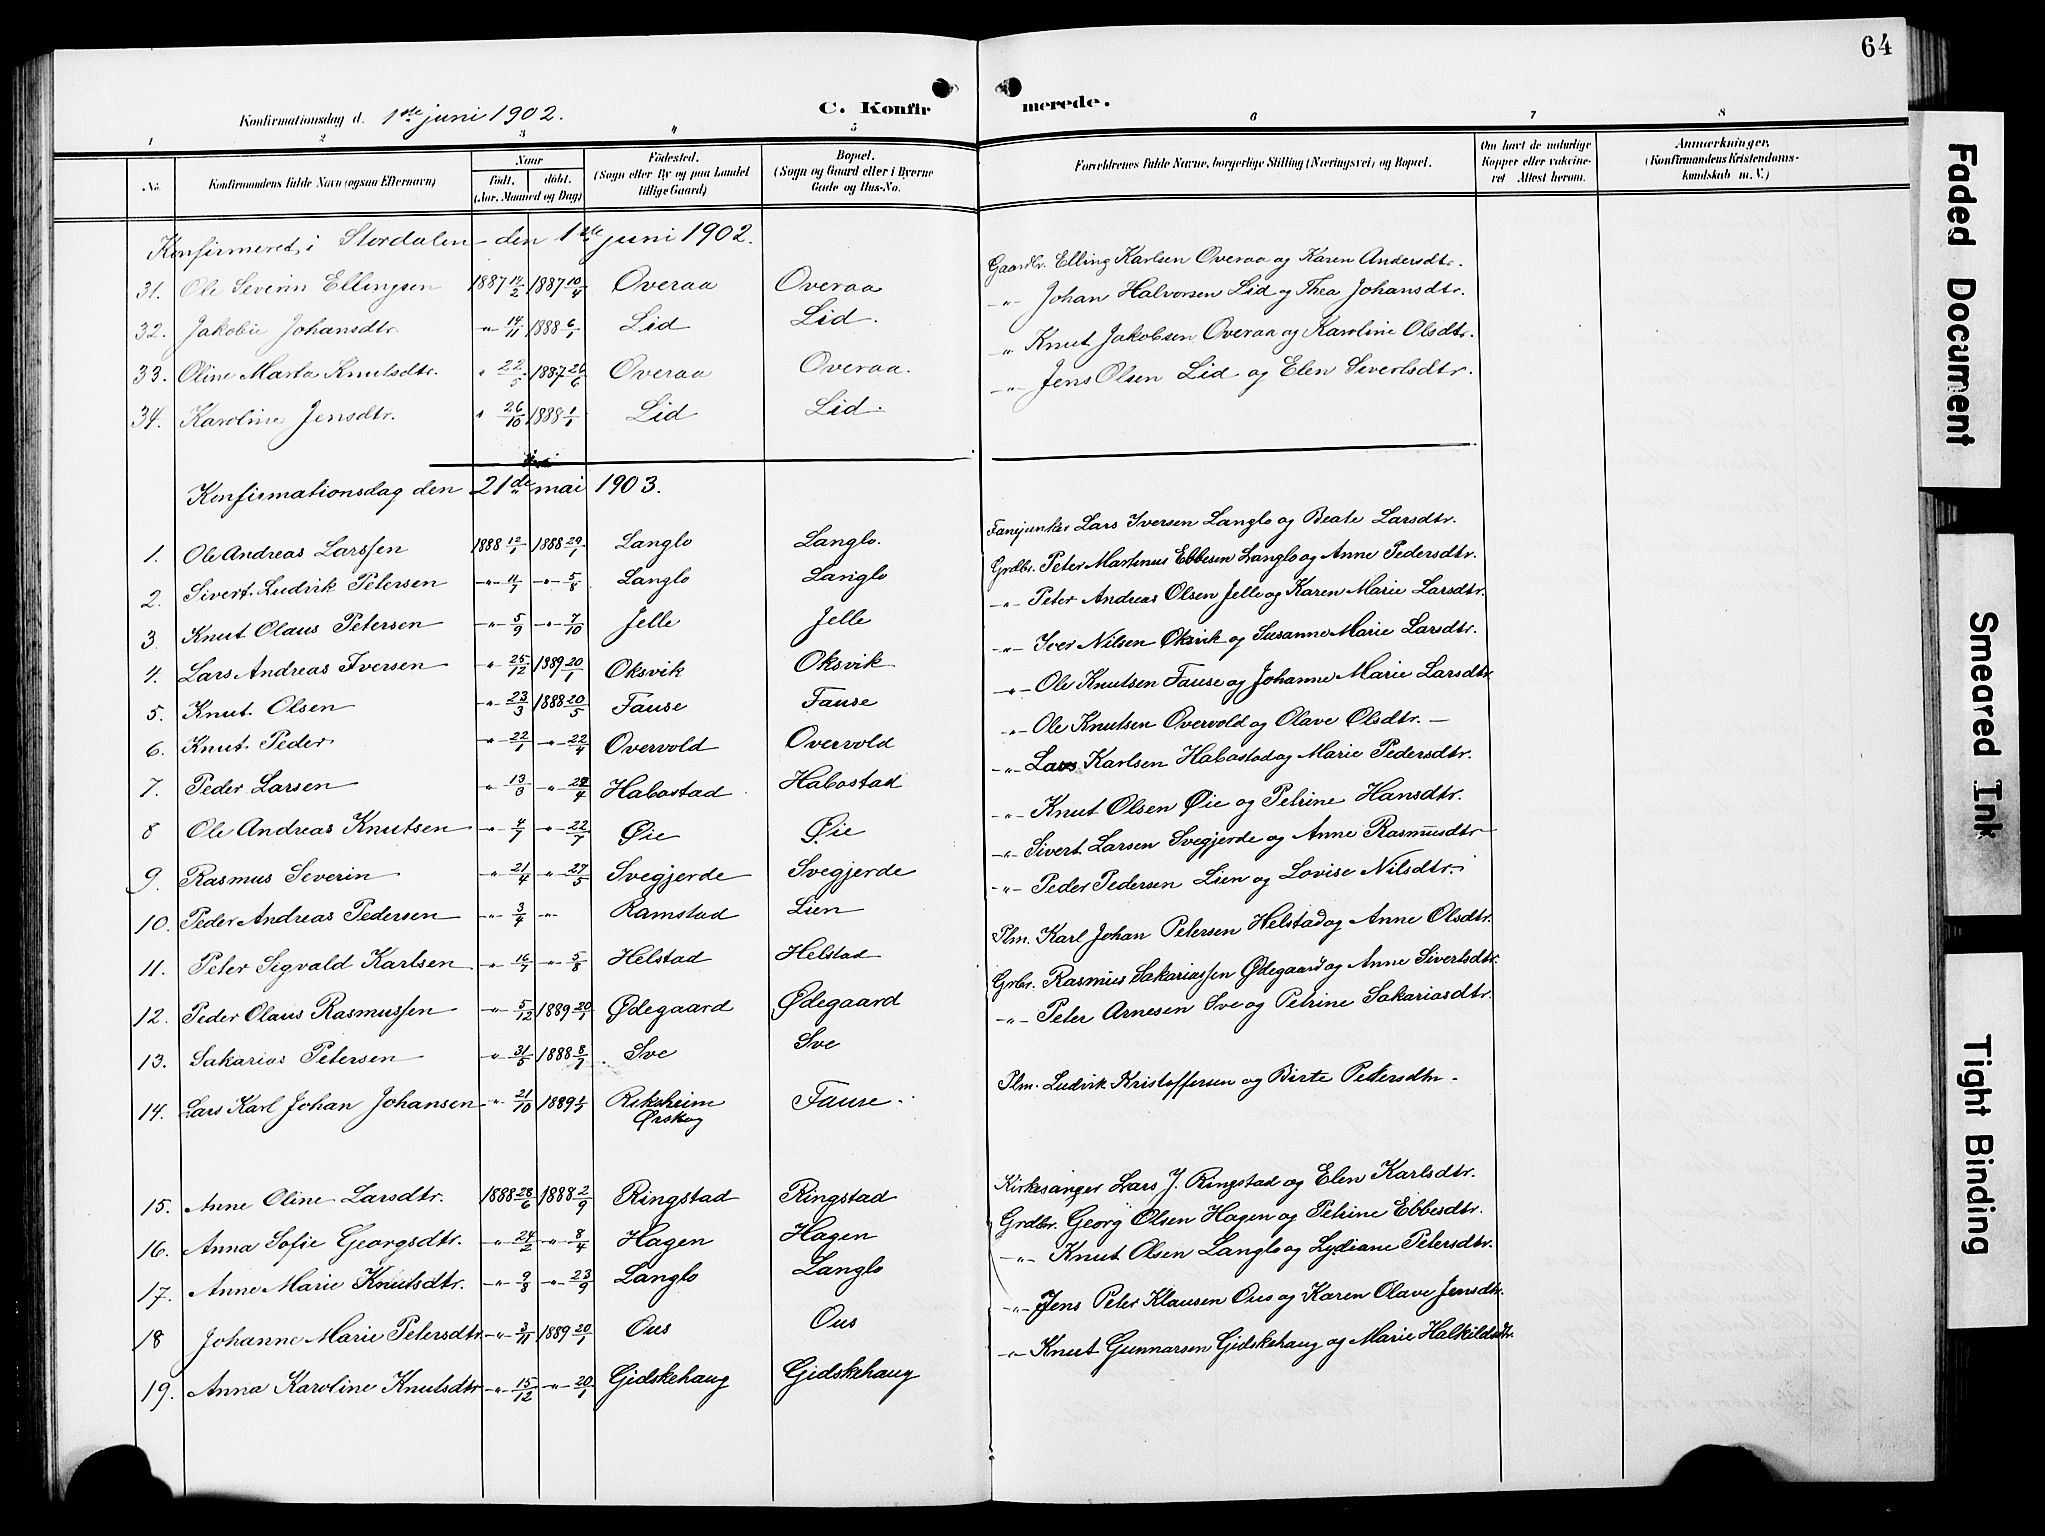 64
Konfirmationsdag d. 1ste juni 1902.
C. Konfirmerede.
1 2 3 4 5 6 7 8
No.
Konfirmandens fulde Navn (ogsaa Efternavn)
Naar
født. døbt.
(Aar, Maaned og Dag)
Fødested.
(Sogn eller By og paa Landet
tillige Gaard)
Bopæl.
(Sogn og Gaard eller i Byerne
Gade og Hus-No.
Forældrenes fulde Navne, borgerlige Stilling (Næringsvei) og Bopæl.
Om havt de naturlige
Kopper eller vakcine-
ret Attest herom.
Anmærkninger.
(Konfirmandens Kristendoms-
kundskab m. V.)
Konfirmeret i Stordalen - den 1ste juni 1902.
31. Ole Severin Ellingsen 1887 14/2 1887 10/4 Overaa Overaa Gaardbr. Elling Karlsen Overaa og Karen Andersdtr.
32. Jakobie Johansdtr. -"- 14/11 1888 6/1 Lid Lid. -"- Johan Halvorsen Lid og Thea Johansdtr.
33. Oline Marta Knutsdtr. " 22/5 1887 26/6 Overaa Overaa. " Knut Jakobsen Overaa og Karoline Olsdtr.
34. Karoline Jensdtr. " 26/10 1888 1/1 Lid Lid. -"- Jens Olsen Lid og Elen Sivertsdtr.
Konfirmationsdag den 21de mai 1903.
1. Ole Andreas Larssen 1888 12/1 1888 29/1 Langlo Langlo. Fanejunker Lars Iversen Langlo og Beate Larsdtr.
2. Sivert Ludvik Petersen -"- 11/7 -"- 5/8 Langlo Langlo Grdbr. Peter Martinus Ebbesen Langlo og Anne Pedersdtr.
3. Knut Olaus Petersen -"- 5/9 -"- 7/10 Jelle Jelle -"- Peter Andreas Olsen Jelle og Karen Marie Larsdtr.
4. Lars Andreas Iversen -"- 25/12 1889 20/1 Oksvik Oksvik -"- Iver Nilsen Oksvik og Susanne Marie Larsdtr.
5. Knut Olsen -"- 23/3 1888 20/5 Fause Fause -"- Ole Knutsen Fause og Johanne Marie Larsdtr
6. Knut Peder -"- 22/1 -"- 22/4 Overvold Overvold -"- Ole Knutsen Overvold og Olave Olsdtr. -
7. Peder Larsen -"- 13/ -"- /4 Habostad Habostad -"- Lars Karlsen Habostad og Marie Pedersdtr.
8 Ole Andreas Knutsen -"- 4/7 -"- 22/7 Øie Øie -"- Knut Olsen Øie og Petrine Hansdtr.
9. Rasmus Severin -"- 21/4 -"- 27/5 Svegjerde Svegjerde -"- Sivert Larsen Svegjerde og Anne Rasmusdtr
10. Peder Andreas Pedersen -"- 3/4 -"- Ramstad Lien -"- Peder Pedersen Lien og Lovise Nilsdtr.
11. Peter Segvald Karlsen -"- 16/7 -"- 5/8 Helstad Helstad Plm. Karl Johan Petersen Helstad og Anne Olsdtr.
12. Peder Olaus Rasmussen -"- 5/12 1889 20/1 Ødegaard Ødegaard Grbr. Rasmus Sakariassen Ødegaard og Anne Sivertsdtr.
13. Sakarias Petersen -"- 31/5 1888 8/7 Sve Sve -"- Peter Arnesen Sve og Petrine Sakariasdtr.
14. Lars Karl Johan Johansen -"- 21/10 1889 Fause. Plm. Ludvik Kristoffersen og Birte Petersdtr -
Ørskog
15. Anne Oline Larsdtr. 1888 28/6 1888 2/9 Ringstad Ringstad Kirkesanger Lars J. Ringstad og Elen Karlsdtr.
16. Anna Sofie Georgsdtr. -"- 24/2 -"- 8/4 Hagen Hagen Grdbr. Georg Olsen Hagen og Petrine Ebbesdtr.
17. Anne Marie Knutsdtr. -"- 9/8 -"- 23/9 Langlo Langlo -"- Knut Olsen Langlo og Lydiane Petersdtr.
18 Johanne Marie Petersdtr -"- 3/11 1889 20/1 Ous Ous -"- Jens Peter Klausen Ous og Karen Olave Jensdtr.
19. Anna Karoline Knutsdtr -"- 15/12 -"- 20/1 Gidskehaug Gidskehaug -"- Knut Gunnarsen Gidskehaug og Marie Halkildsdtr.
Faded Document
Smeared Ink
Tight Binding